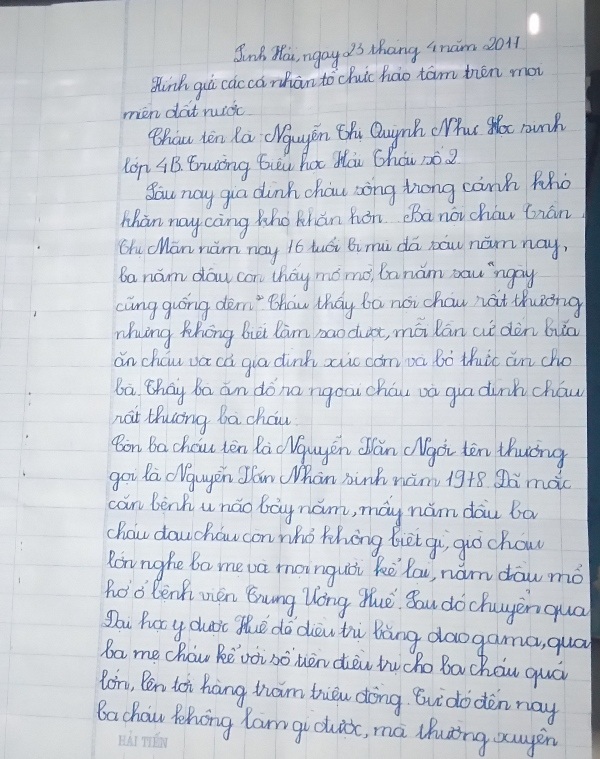 Tịnh Hải, ngày 23 tháng 4 năm 2011
Kính gửi các cá nhân tổ chức hảo tâm trên mọi
miền đất nước
Cháu tên là: Nguyễn Thị Quỳnh Như Học sinh
lớp 4B. Trường Tiểu học Hải Châu số 2.
Sáu nay gia đình cháu sống trong cảnh khó
khăn nay càng khó khăn hơn. Bà nội cháu Trần
Thị Mãn năm nay 76 tuổi Bị mù đã sáu năm nay,
ba năm đầu còn thấy mờ mờ, ba năm sau "ngày
cũng giống đêm" Cháu thấy bà nội cháu rất thương
nhưng không biết làm sao được, mỗi lần cứ đến bữa
ăn cháu và cả gia đình xúc cơm và bỏ thức ăn cho
bà. Thấy bà ăn đổ ra ngoài cháu và gia đình cháu
rất thương bà cháu.
Còn Ba cháu tên là Nguyễn Văn Ngơi tên thường
gọi là Nguyễn Văn Nhân sinh năm 1978. Đã mắc
căn bệnh u não bảy năm, mấy năm đầu ba
cháu đau cháu còn nhỏ không biết gì, giờ cháu
lớn nghe ba mẹ và mọi người kể lại, năm đầu mổ
hở ở bệnh viện Trung Ương Huế. Sau đó chuyển qua
Đại học y dược Huế để điều trị bằng dao gama, qua
ba mẹ cháu kể với số tiền điều trị cho ba cháu quá
lớn, lên tới hàng trăm triệu đồng. Từ đó đến nay
Ba cháu không làm gì được, mà thường xuyên
HẢI TIẾN